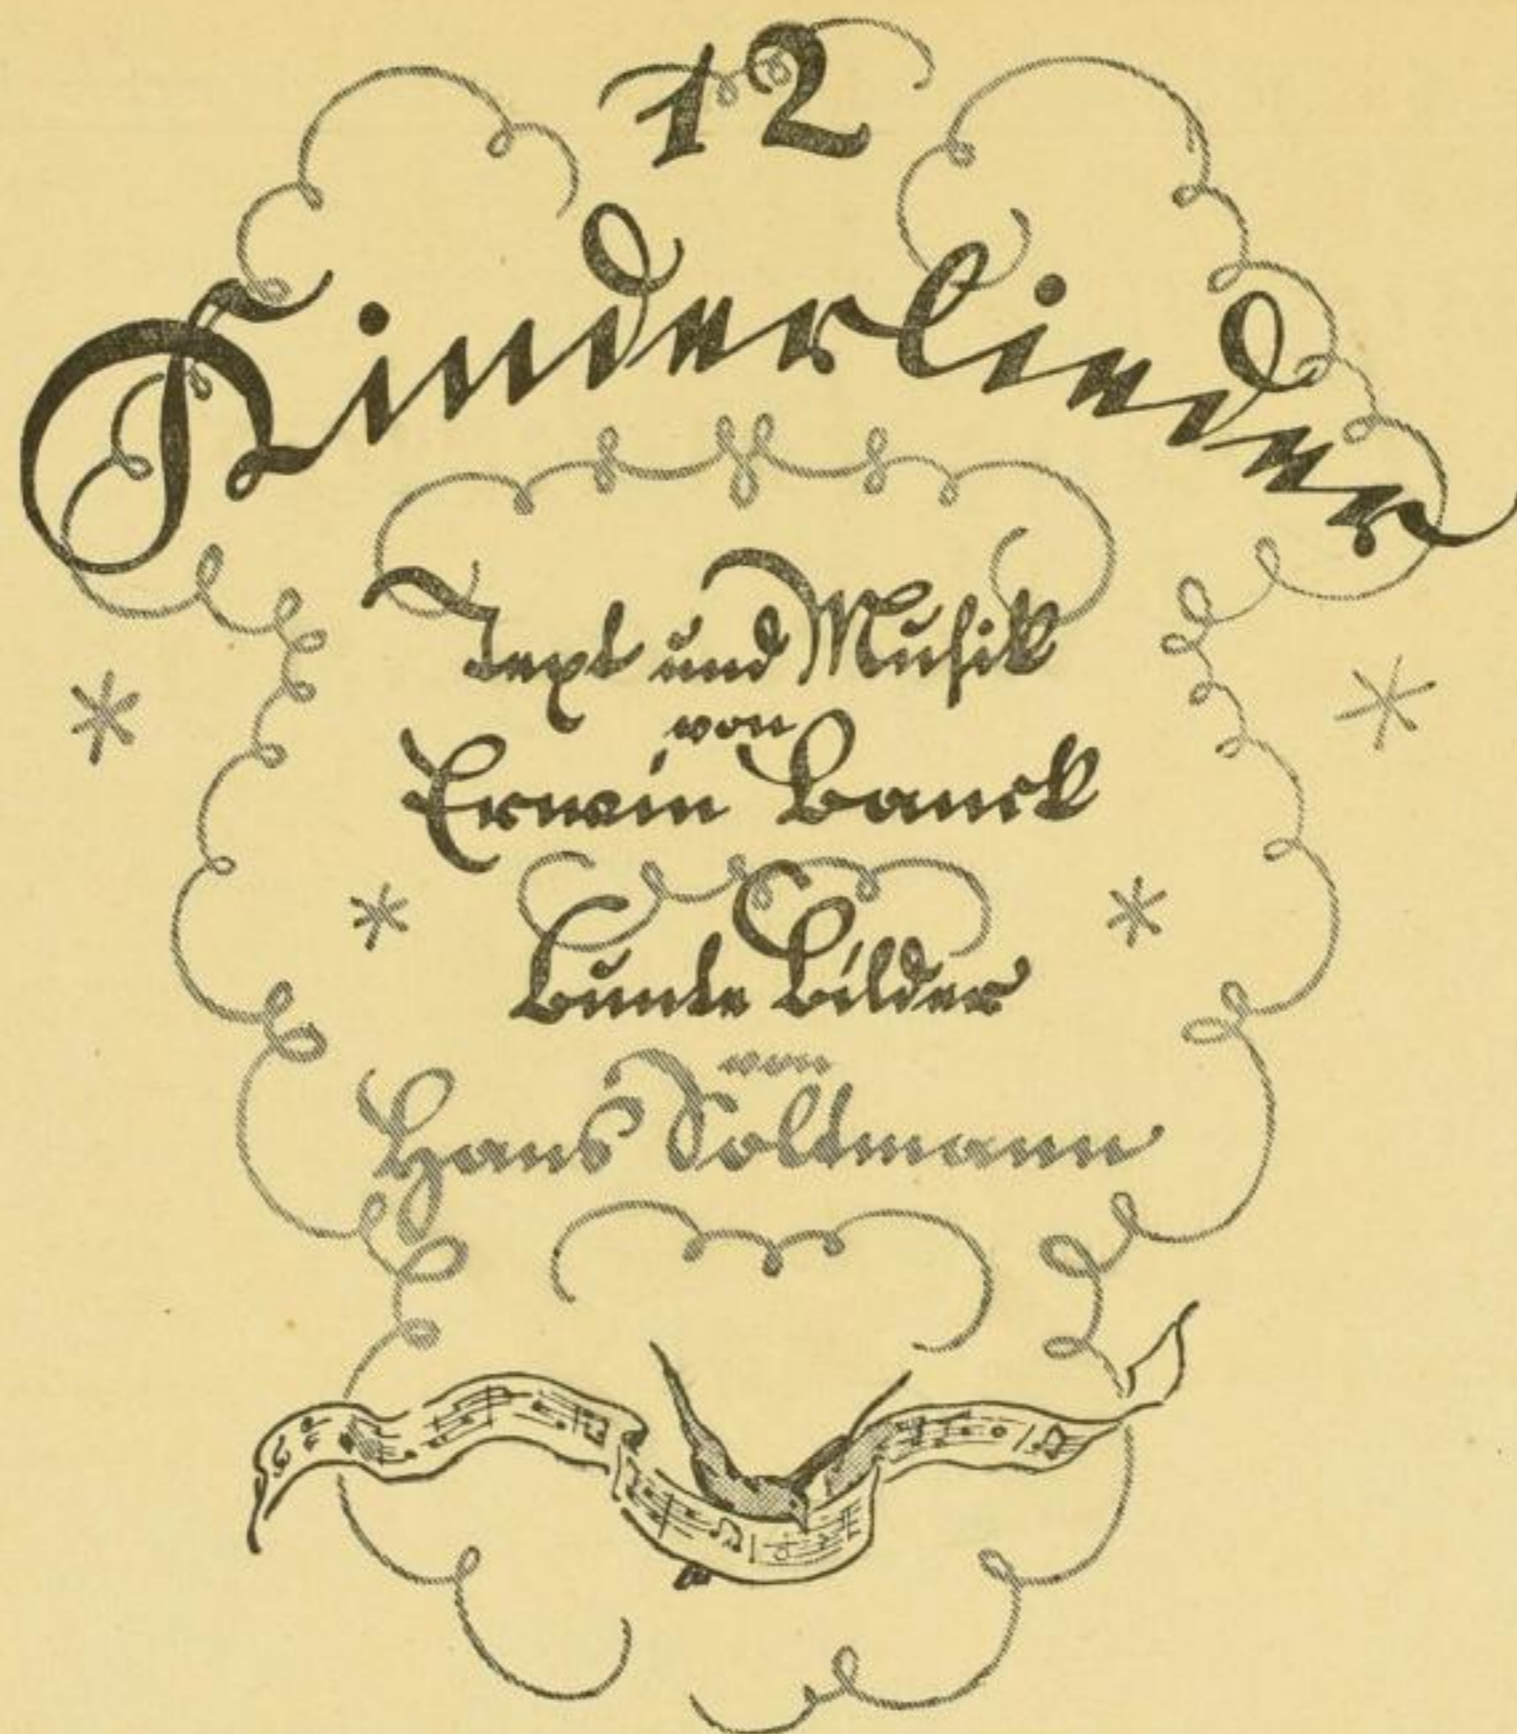 12
Kinderlieder
Text und Musik
von
Erwin Banck
Bunte Bilder
von
Hans Soltmann